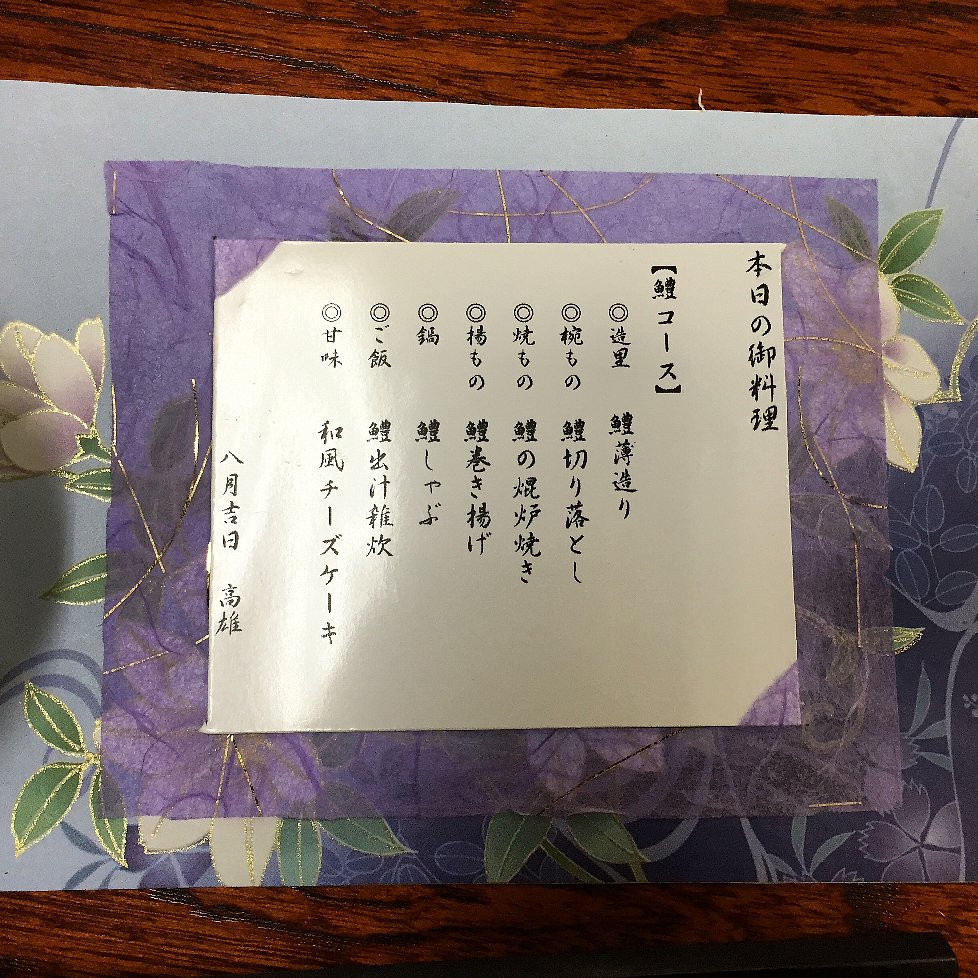 本日の御料理
【鱧コース】
◎造里 鱧薄造り
◎椀もの 鱧切り落とし
◎焼もの 鱧の焜炉焼き
◎揚もの 鱧巻き揚げ
◎鍋 鱧しゃぶ
◎ご飯 鱧出汁雑炊
◎甘味 和風チーズケーキ
八月吉日 高雄